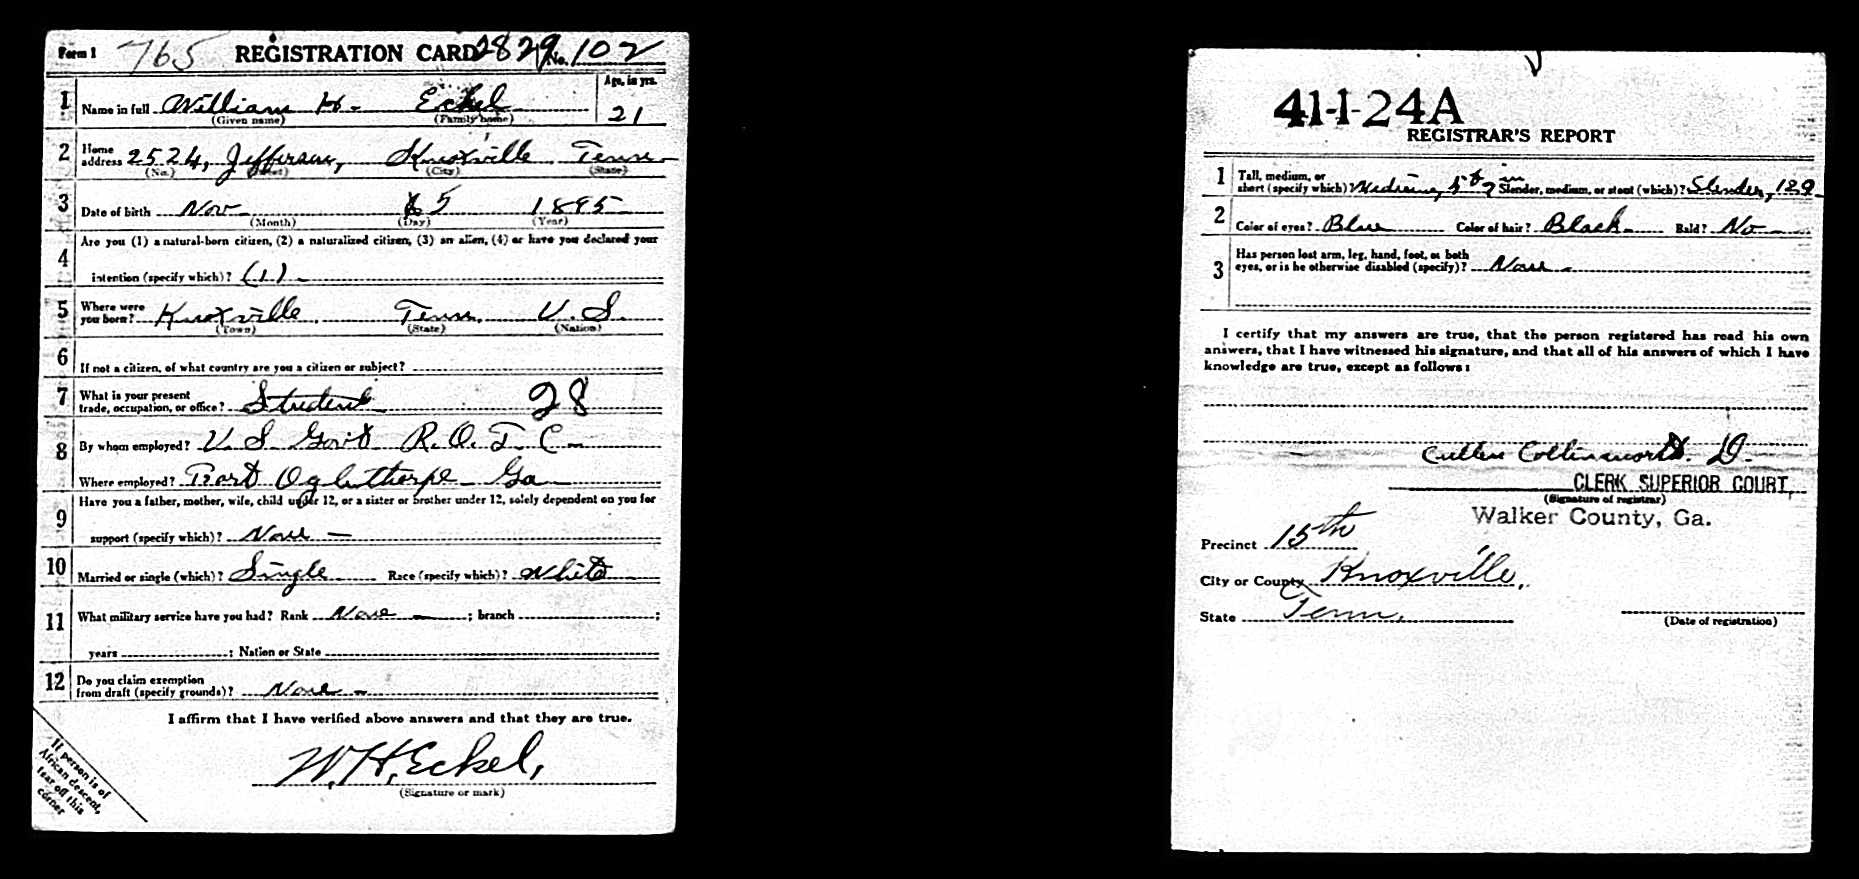 Form 1 765 REGISTRATION CARD 2829 No. 102
1 Name in full William H. Eckel Age, in yrs. 21
(Given name) (Family name)
2 Home address 2524, Jefferson, Knoxville Tenn
(No.) (Street) (City) (State)
3 Date of birth Nov 5 1895
(Month) (Day) (Year)
4 Are you (1) a natural-born citizen, (2) a naturalized citizen, (3) an alien, (4) or have you declared your
intention (specify which)? (1)
5 Where were you born? Knoxville Tenn. U. S.
(Town) (State) (Nation)
6 If not a citizen, of what country are you a citizen or subject?
7 What is your present trade, occupation, or office? Student 28
8 By whom employed? U S Gov't R. O. T. C
Where employed? Fort Oglethorpe Ga
9 Have you a father, mother, wife, child under 12, or a sister or brother under 12, solely dependent on you for
support (specify which)? None
10 Married or single (which)? Single Race (specify which)? White
11 What military service have you had? Rank None ; branch ;
years ; Nation or State
12 Do you claim exemption from draft (specify grounds)? None
I affirm that I have verified above answers and that they are true.
W. H. Eckel,
(Signature or mark)
If person is of
African descent,
tear off this
corner
41-1-24A
REGISTRAR'S REPORT
1 Tall, medium, or short (specify which)? Medium, 5 ft 7 in Slender, medium, or stout (which)? Slender, 129
2 Color of eyes? Blue Color of hair? Black Bald? No
3 Has person lost arm, leg, hand, foot, or both eyes, or is he otherwise disabled (specify)? None
I certify that my answers are true, that the person registered has read his own
answers, that I have witnessed his signature, and that all of his answers of which I have
knowledge are true, except as follows:
CLERK SUPERIOR COURT,
(Signature of registrar)
Walker County, Ga.
Precinct 15th
City or County Knoxville,
State Tenn.
(Date of registration)